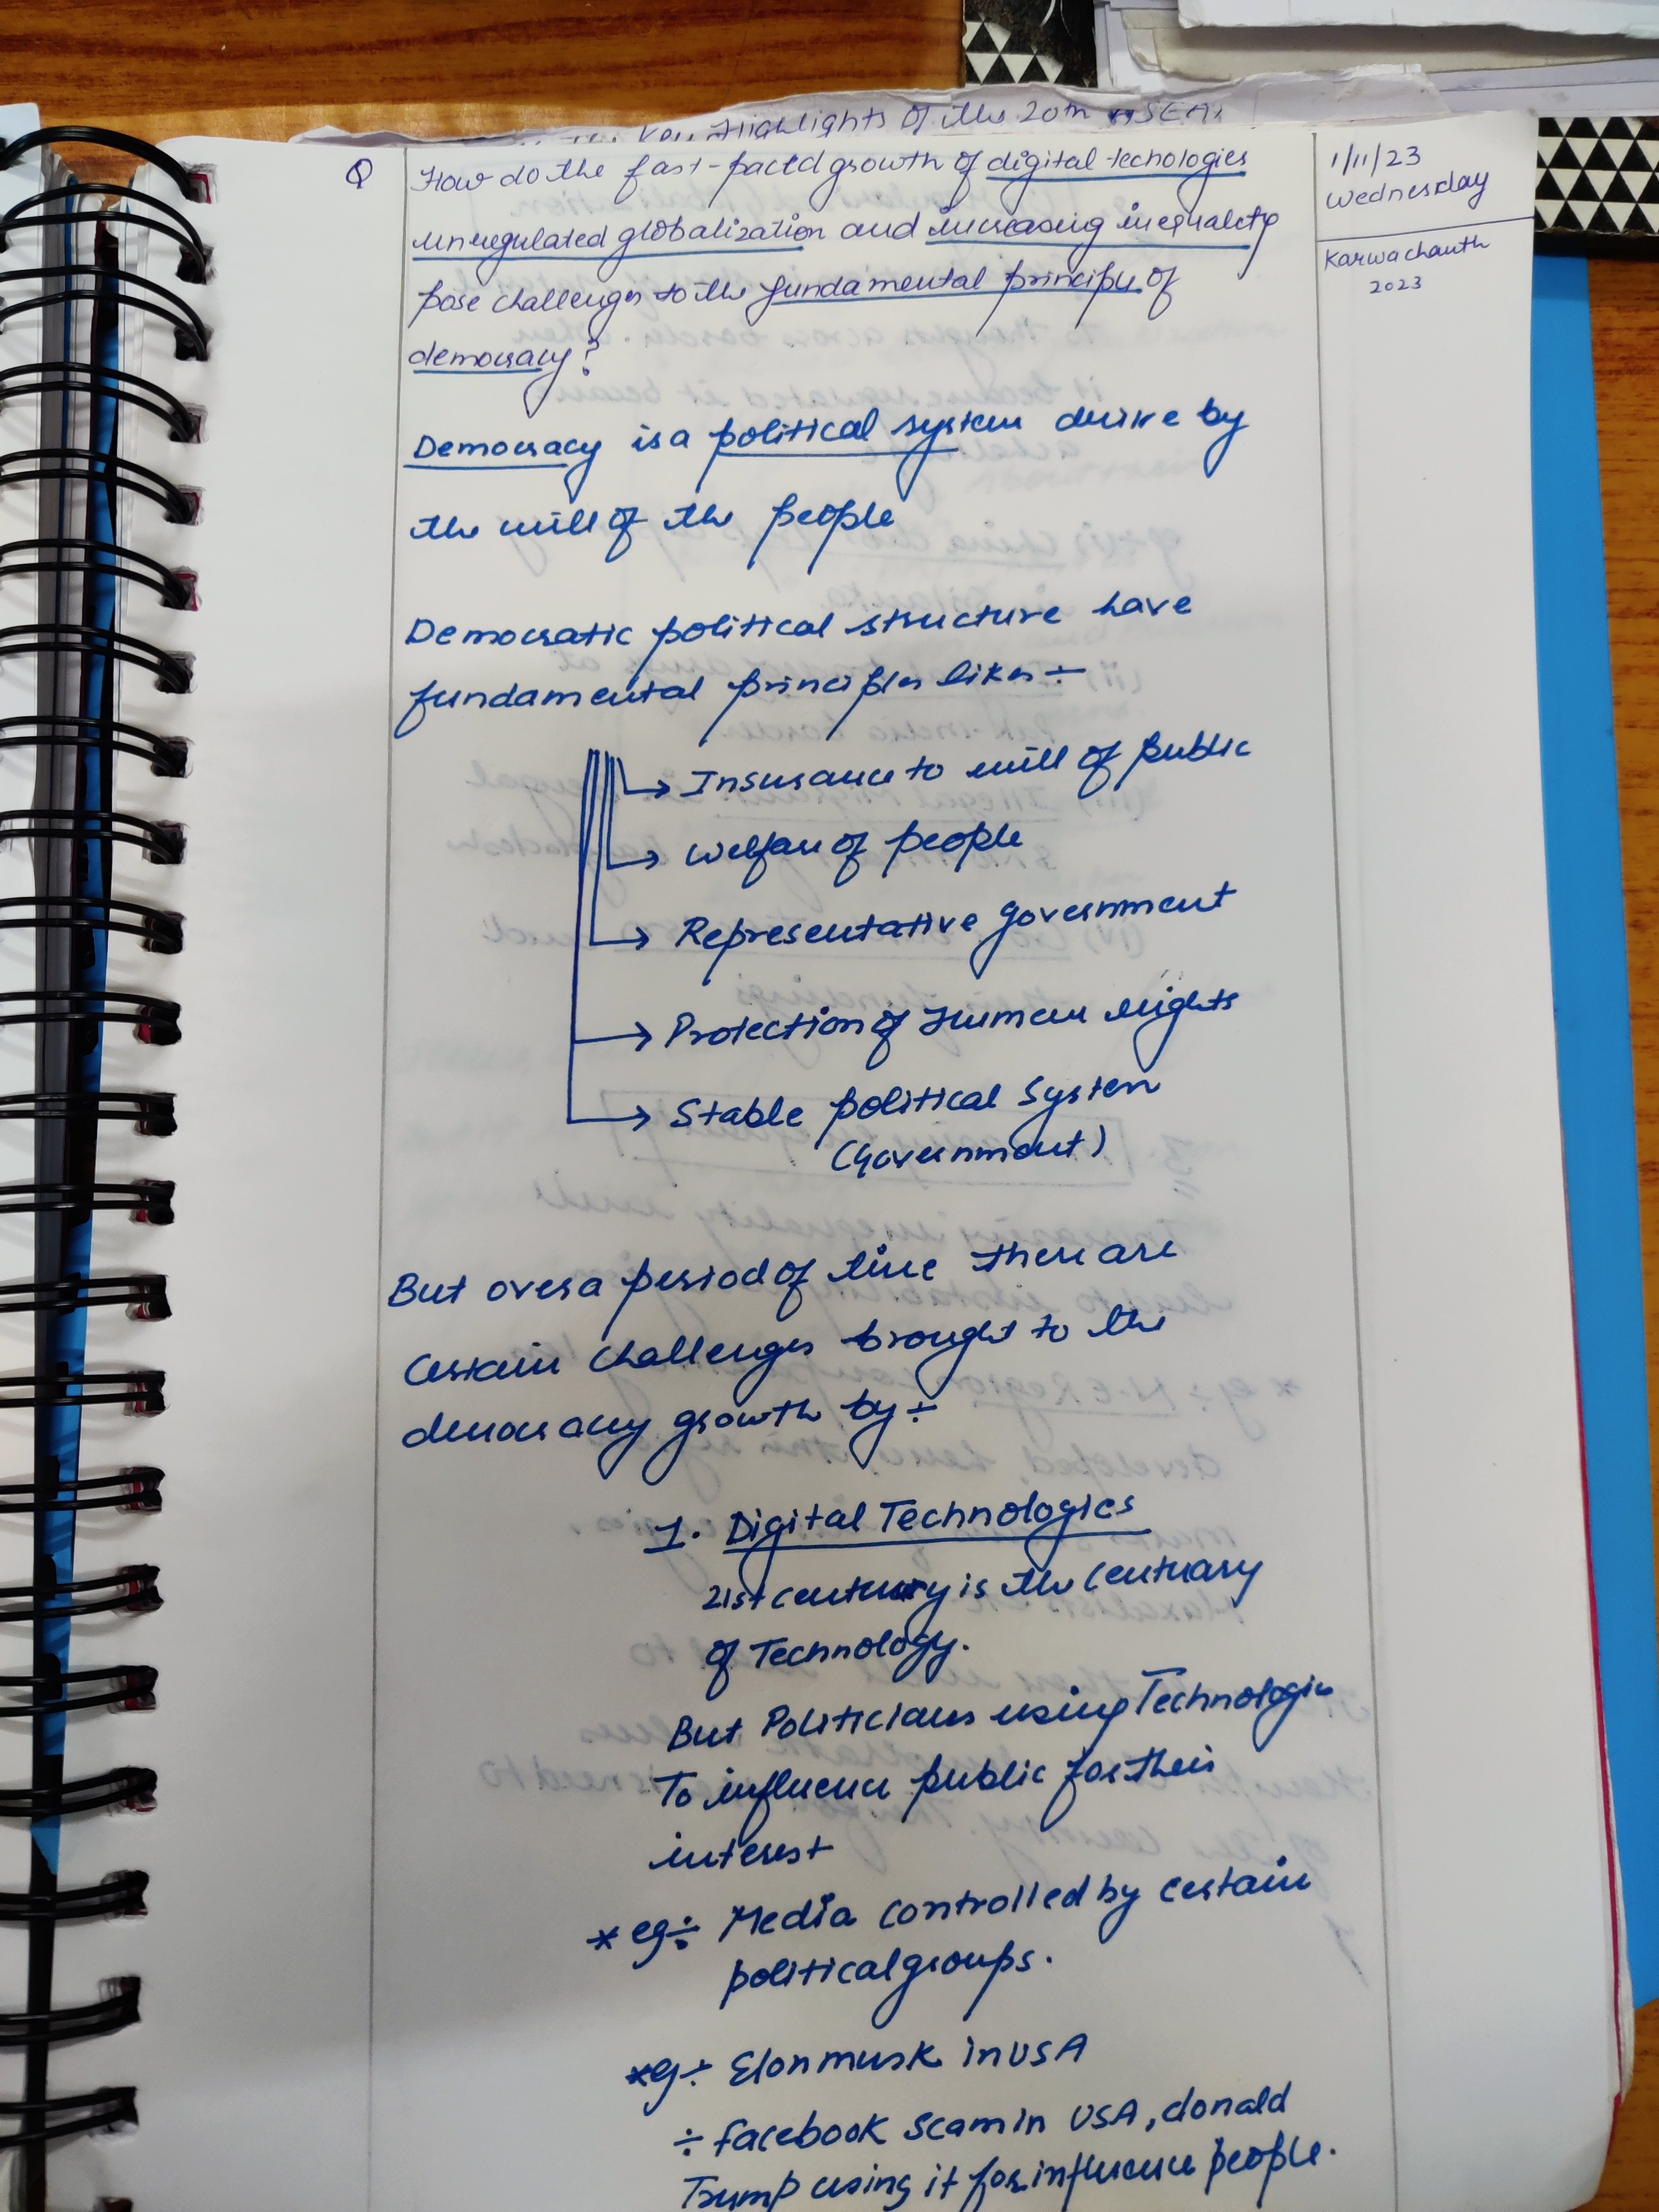 Key Highlights of the 20th
1/11/23
Wednesday
Karwachauth
2023
Q How do the fast-paced growth of digital technologies
unregulated globalization and increasing inequality
pose challenges to the fundamental principle of
democracy?
Democracy is a political system derive by
the will of the people
Democratic political structure have
fundamental principles likes ÷
→ Insurance to will of public
→ Welfare of people
→ Representative government
→ Protection of Human rights
→ Stable political System
(Government)
But over a period of time there are
Certain challenges brought to the
democracy growth by ÷
1. Digital Technologies
21st century is the Centuary
of Technology.
But Politicians using Technologies
To influence public for their
interest
* eg ÷ Media controlled by certain
political groups.
* eg ÷ Elon musk in USA
÷ facebook scam in USA, donald
Trump using it for influence people.